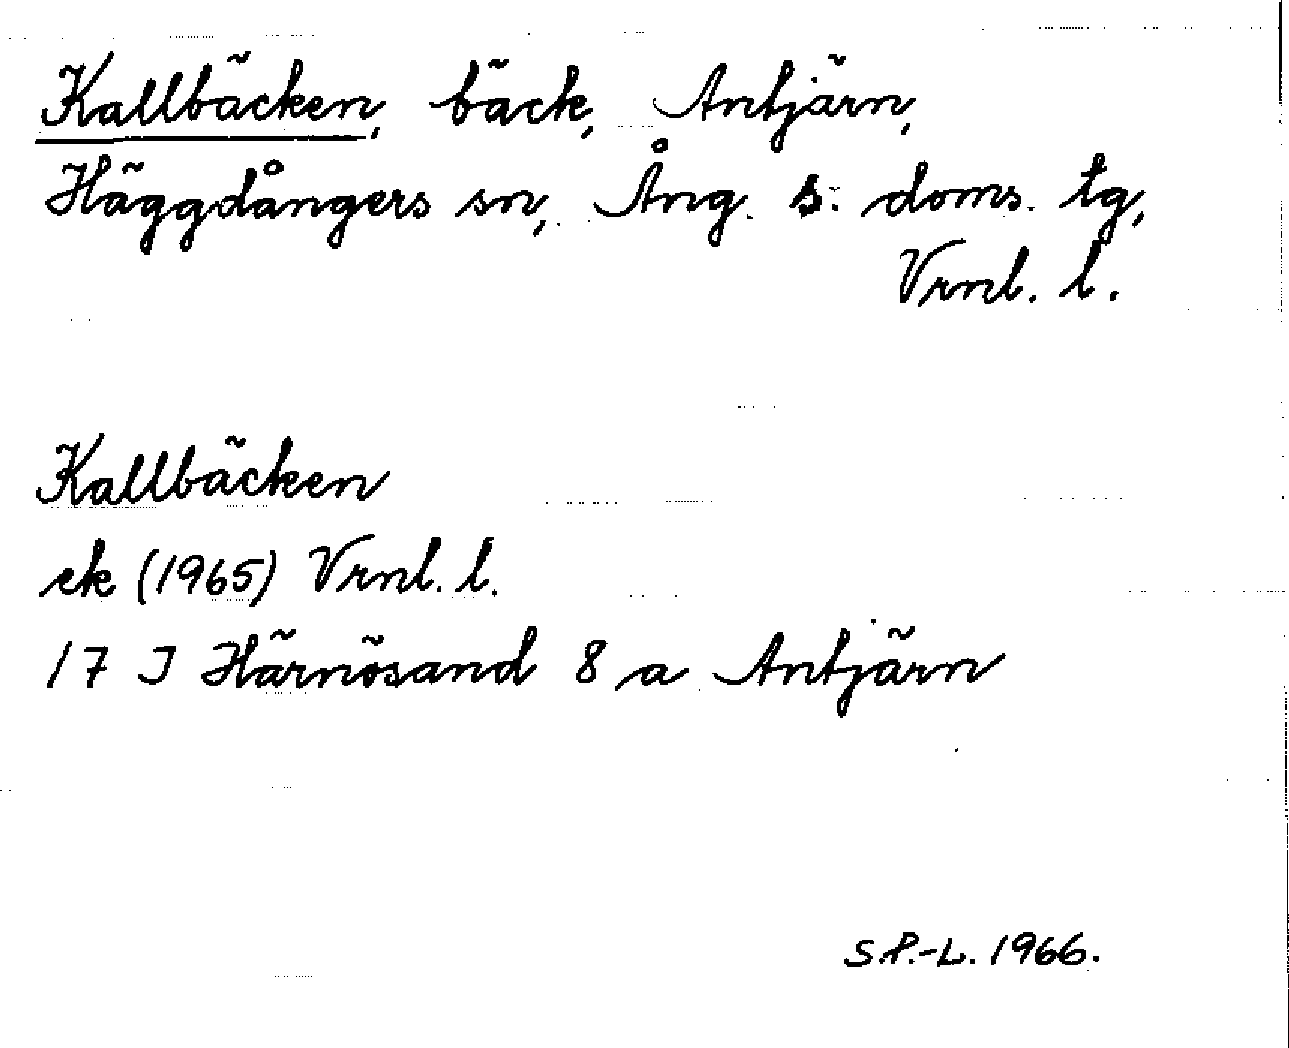 Kallbäcken, bäck, Antjärn,
Häggdångers sn, Ång. s. doms. tg,
Vrnl. l.
Kallbäcken
ek (1965) Vrnl. l.
17 J Härnösand 8 a Antjärn
S.P.-L. 1966.